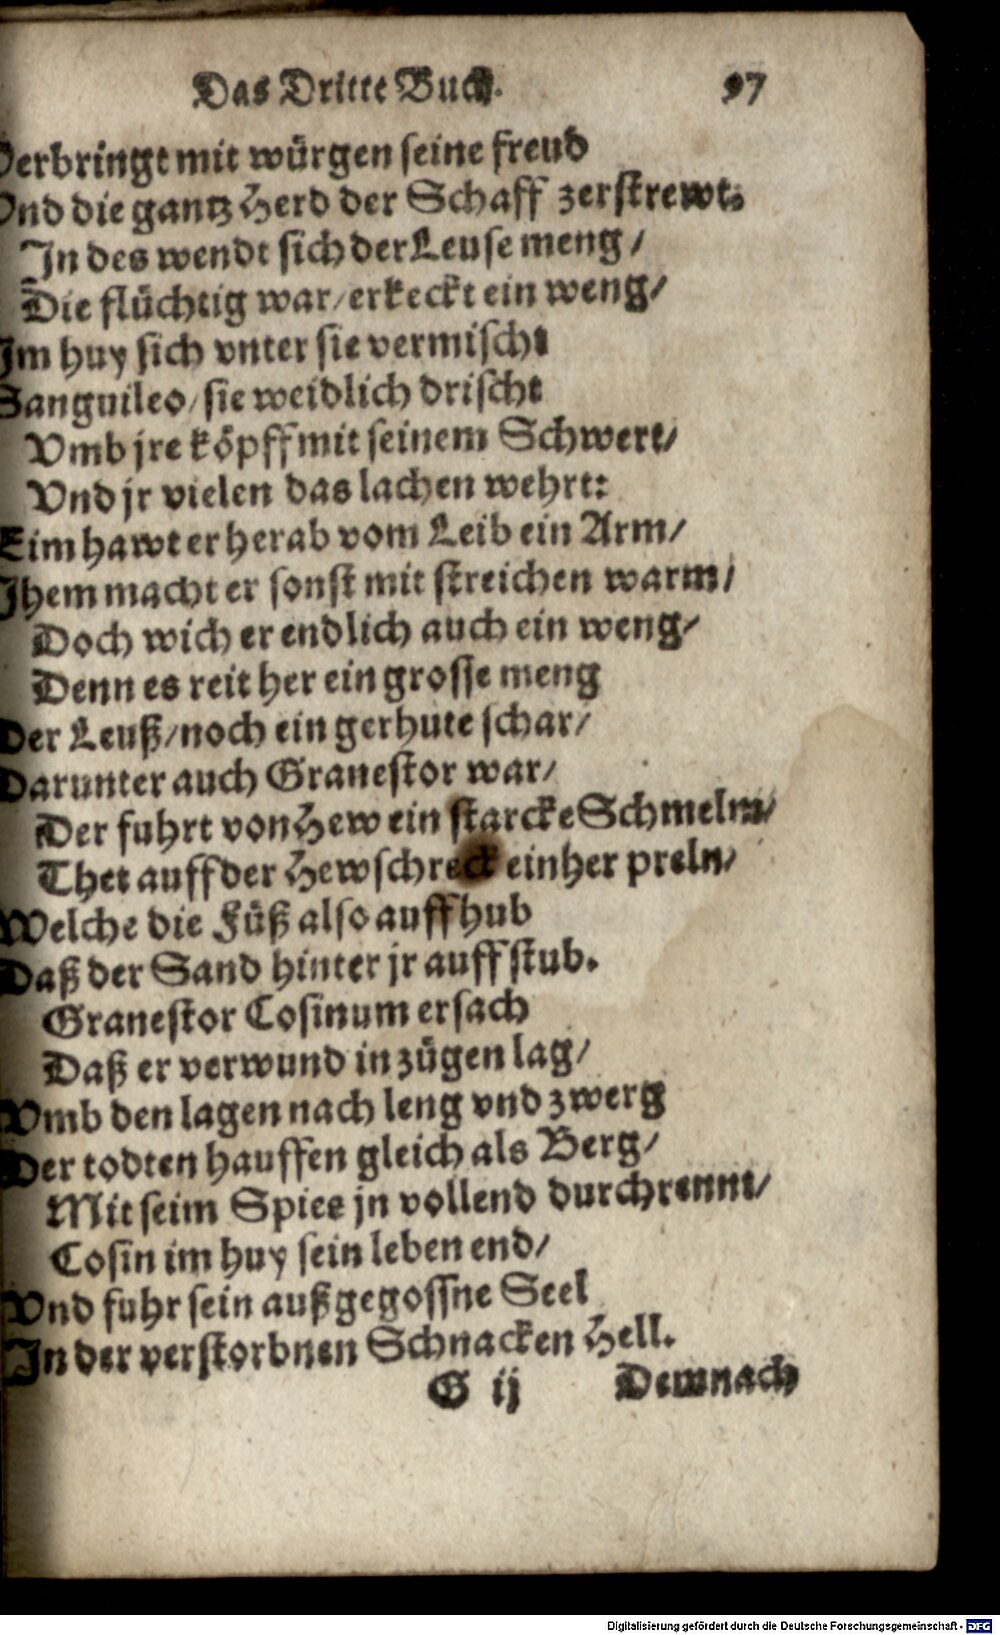 Das Dritte Buch. 97
Verbringt mit würgen seine freud
Vnd die gantz Herd der Schaff zerstrewt:
In des wendt sich der Leuse meng /
Die flüchtig war / erkeckt ein weng /
Im huy sich vnter sie vermischt
Sanguileo / sie weidlich drischt
Vmb jre köpff mit seinem Schwert /
Vnd jr vielen das lachen wehrt:
Eim hawt er herab vom Leib ein Arm /
Jhem macht er sonst mit streichen warm /
Doch wich er endlich auch ein weng /
Denn es reit her ein grosse meng
Der Leuß / noch ein gerhute schar /
Darunter auch Granestor war /
Der fuhrt von Hew ein starcke Schmeln /
Thet auff der Hewschreck einher preln /
Welche die Füß also auff hub
Daß der Sand hinter jr auff stub.
Granestor Cosinum ersach
Daß er verwund in zügen lag /
Vmb den lagen nach leng vnd zwerg
Der todten hauffen gleich als Berg /
Mit seim Spies jn vollend durchrennt /
Cosin im huy sein leben end /
Vnd fuhr sein außgegossne Seel
In der verstorbnen Schnacken Hell.
G ij Demnach
Digitalisierung gefördert durch die Deutsche Forschungsgemeinschaft - DFG